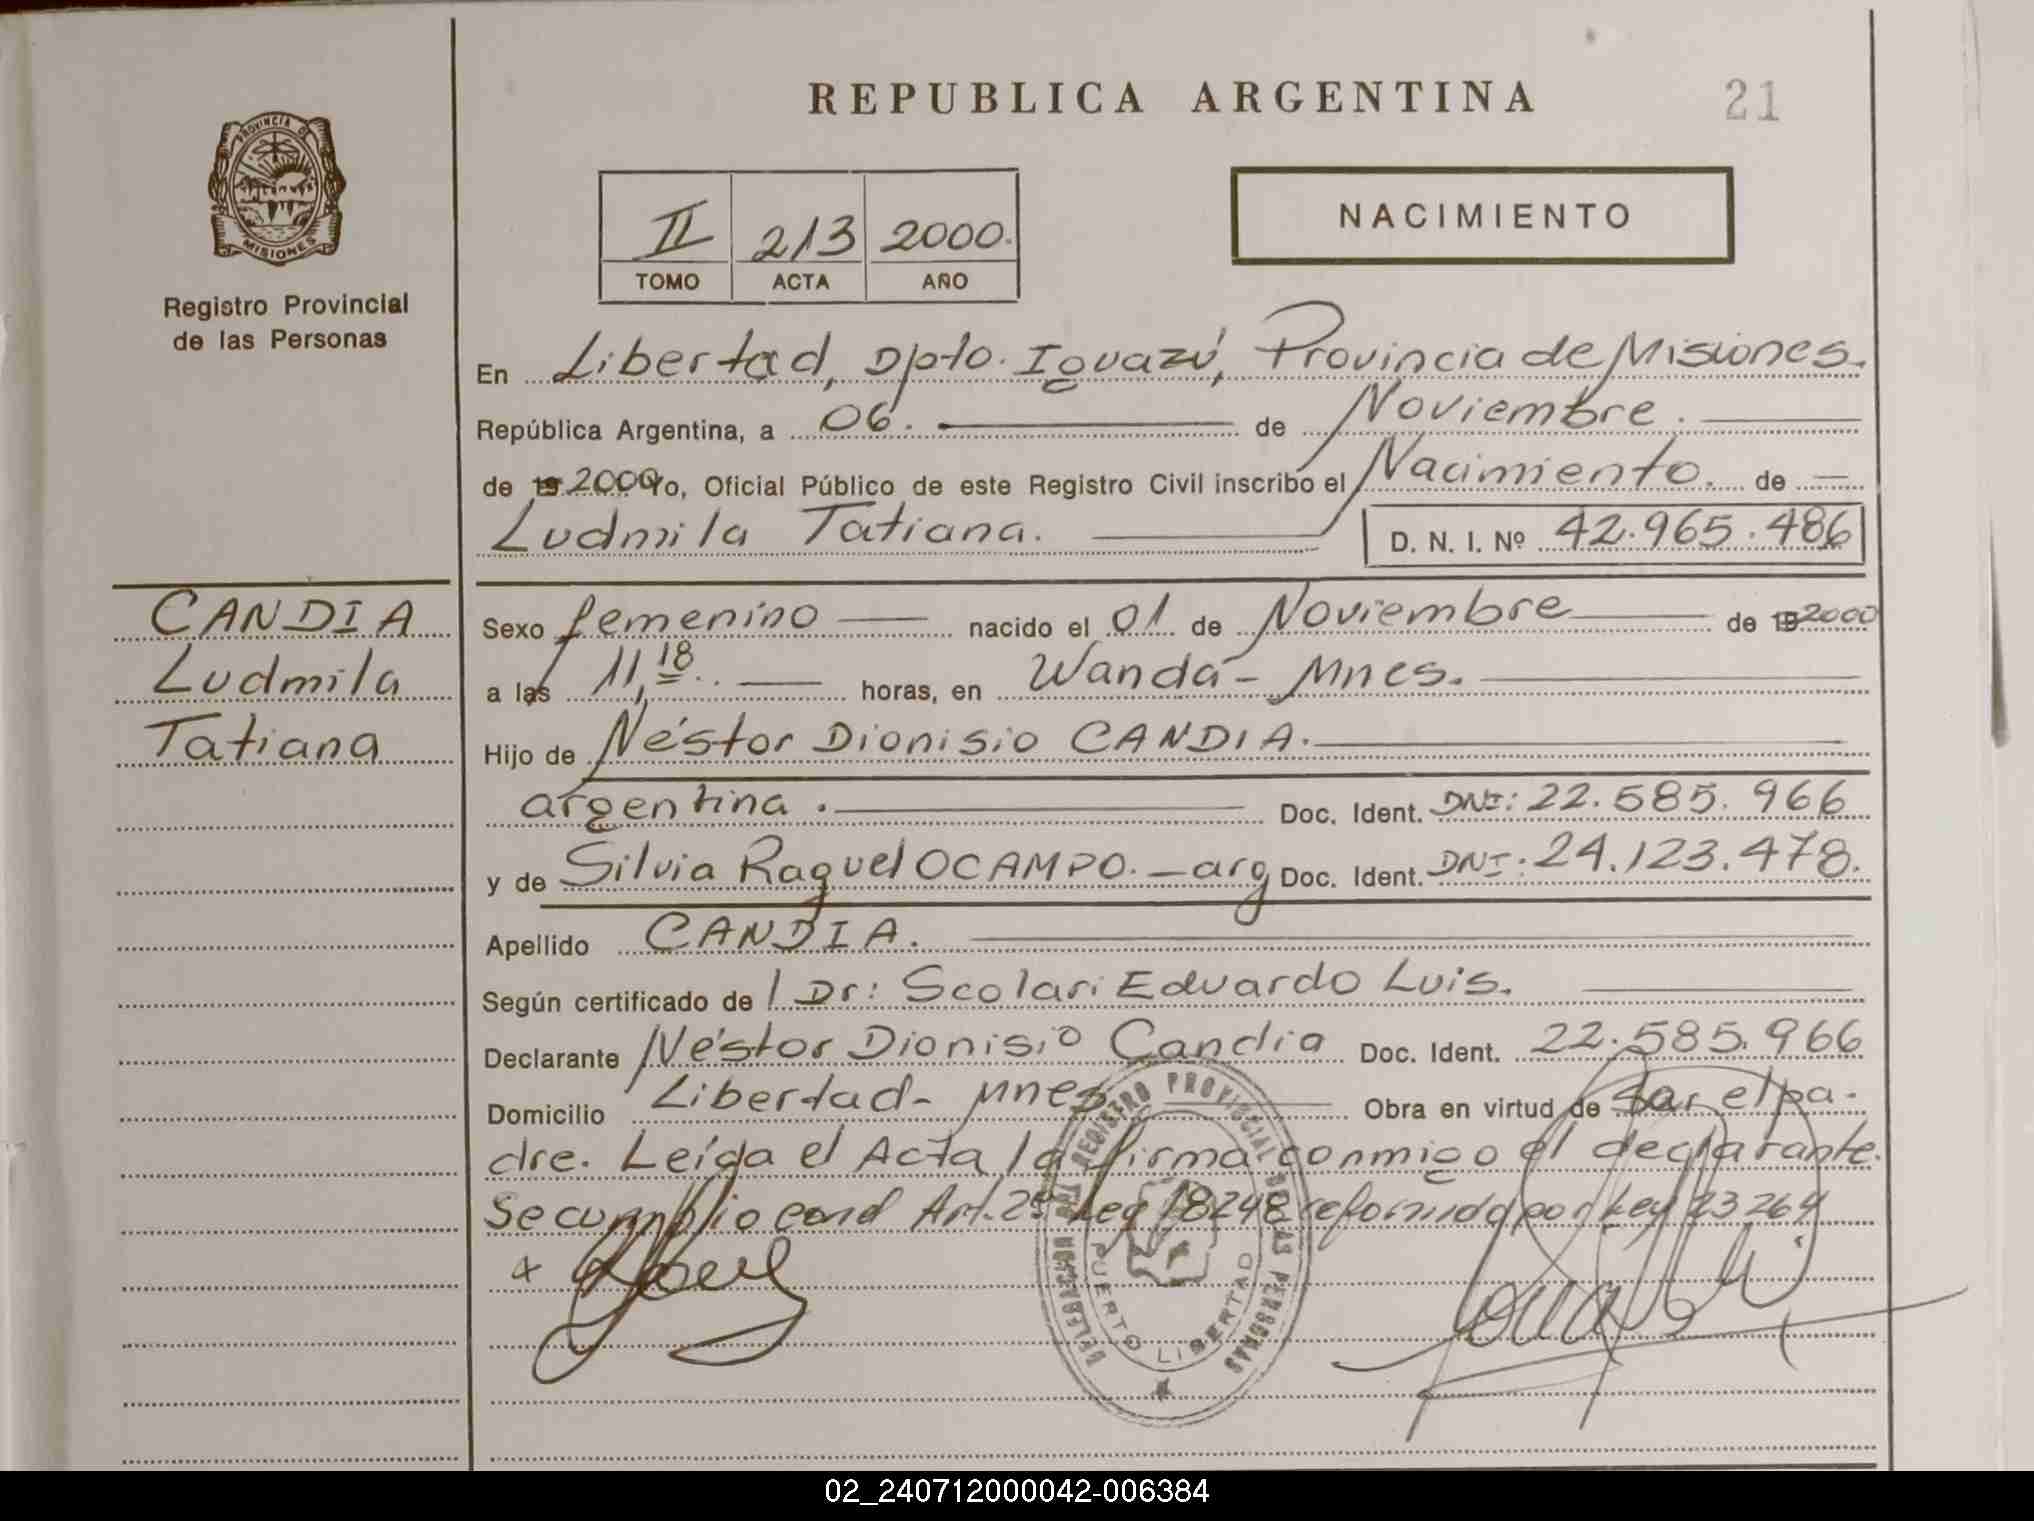 REPUBLICA ARGENTINA
21
PROVINCIA DE
MISIONES
Registro Provincial
de las Personas
II 213 2000.
TOMO ACTA AÑO
NACIMIENTO
En Libertad, Dpto. Iguazú, Provincia de Misiones.
República Argentina, a 06. de Noviembre.
de 19 2000 Yo, Oficial Público de este Registro Civil inscribo el Nacimiento. de
Ludmila Tatiana. D. N. I. Nº 42.965.486
CANDIA
Ludmila
Tatiana
Sexo femenino nacido el 01 de Noviembre de 19 2000
a las 11,18 horas, en Wanda - Mnes.
Hijo de Néstor Dionisio CANDIA.
argentina. Doc. Ident. DNI: 22.585.966
y de Silvia Raquel OCAMPO. - arg Doc. Ident. DNI: 24.123.478.
Apellido CANDIA.
Según certificado de Dr: Scolari Eduardo Luis.
Declarante Néstor Dionisio Candia Doc. Ident. 22.585.966
Domicilio Libertad - Mnes Obra en virtud de Ser el pa-
dre. Leída el Acta la firma conmigo el declarante.
Se cumplio con el Art. 2º Ley 18248 reformado por Ley 23264
REGISTRO PROVINCIAL DE LAS PERSONAS
PUERTO LIBERTAD
02_240712000042-006384